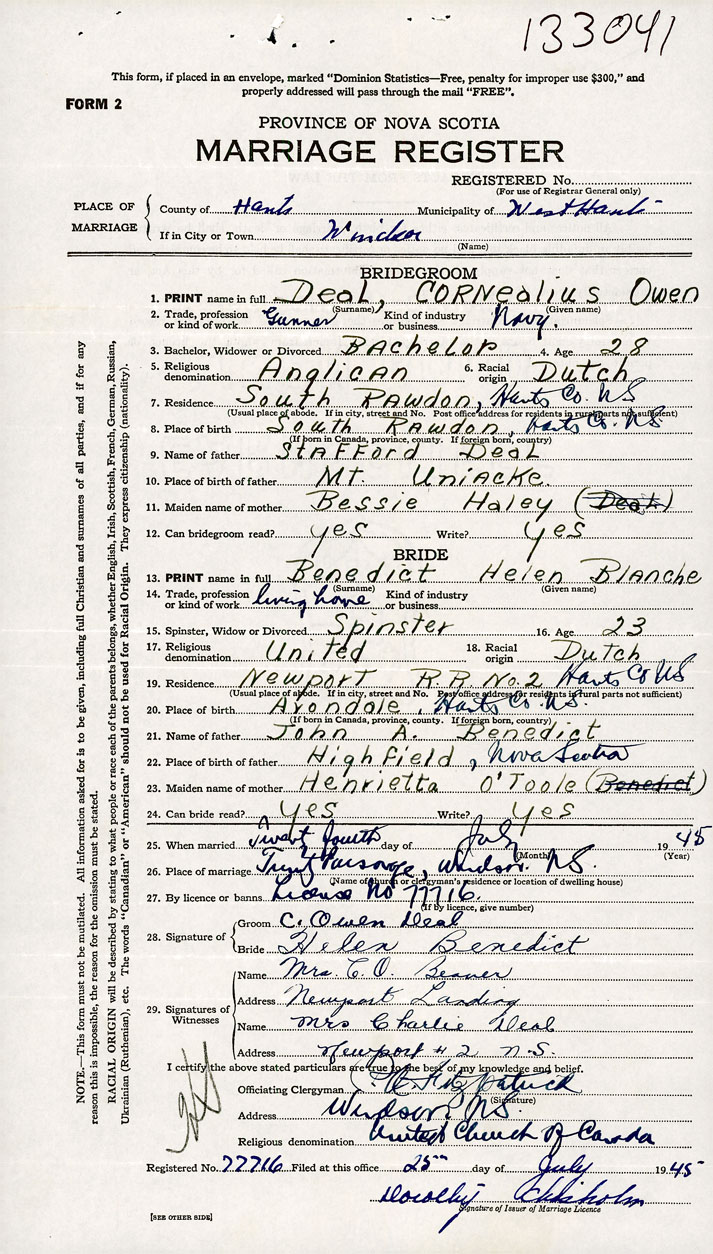 133041
This form, if placed in an envelope, marked "Dominion Statistics—Free, penalty for improper use $300," and
properly addressed will pass through the mail "FREE".
FORM 2
PROVINCE OF NOVA SCOTIA
MARRIAGE REGISTER
REGISTERED No.
(For use of Registrar General only)
PLACE OF MARRIAGE
County of Hants Municipality of West Hants
If in City or Town Windsor
(Name)
BRIDEGROOM
1. PRINT name in full Deal, Cornealius Owen
(Surname) (Given name)
2. Trade, profession or kind of work Gunner Kind of industry or business Navy.
3. Bachelor, Widower or Divorced Bachelor 4. Age 28
5. Religious denomination Anglican 6. Racial origin Dutch
7. Residence South Rawdon, Hants Co. NS
(Usual place of abode. If in city, street and No. Post office address for residents in rural parts not sufficient)
8. Place of birth South Rawdon, Hants Co. NS.
(If born in Canada, province, county. If foreign born, country)
9. Name of father Stafford Deal
10. Place of birth of father Mt. Uniacke.
11. Maiden name of mother Bessie Haley (Deal)
12. Can bridegroom read? yes Write? yes
BRIDE
13. PRINT name in full Benedict Helen Blanche
(Surname) (Given name)
14. Trade, profession or kind of work living home Kind of industry or business
15. Spinster, Widow or Divorced Spinster 16. Age 23
17. Religious denomination United 18. Racial origin Dutch
19. Residence Newport R.R. No. 2 Hants Co NS
(Usual place of abode. If in city, street and No. Post office address for residents in rural parts not sufficient)
20. Place of birth Avondale, Hants Co. N.S.
(If born in Canada, province, county. If foreign born, country)
21. Name of father John A. Benedict
22. Place of birth of father Highfield, Nova Scotia
23. Maiden name of mother Henrietta O'Toole (Benedict)
24. Can bride read? yes Write? yes
25. When married Twenty fourth day of July 1945
(Month) (Year)
26. Place of marriage Trinity Parsonage, Windsor. N.S.
(Name of church or clergyman's residence or location of dwelling house)
27. By licence or banns License No 77716.
(If by licence, give number)
28. Signature of
Groom C. Owen Deal
Bride Helen Benedict
29. Signatures of Witnesses
Name Mrs. C. O. Beaver
Address Newport Landing
Name Mrs Charlie Deal
Address Newport # 2 N.S.
I certify the above stated particulars are true to the best of my knowledge and belief.
Officiating Clergyman Fitzpatrick
(Signature)
Address Windsor, N.S.
Religious denomination United Church of Canada
Registered No. 77716 Filed at this office 25 day of July 1945
Dorothy Chisholm
Signature of Issuer of Marriage Licence
[SEE OTHER SIDE]
NOTE.—This form must not be mutilated. All information asked for is to be given, including full Christian and surnames of all parties, and if for any
reason this is impossible, the reason for the omission must be stated.
RACIAL ORIGIN will be described by stating to what people or race each of the parents belongs, whether English, Irish, Scottish, French, German, Russian,
Ukrainian (Ruthenian), etc. The words "Canadian" or "American" should not be used for Racial Origin. They express citizenship (nationality).